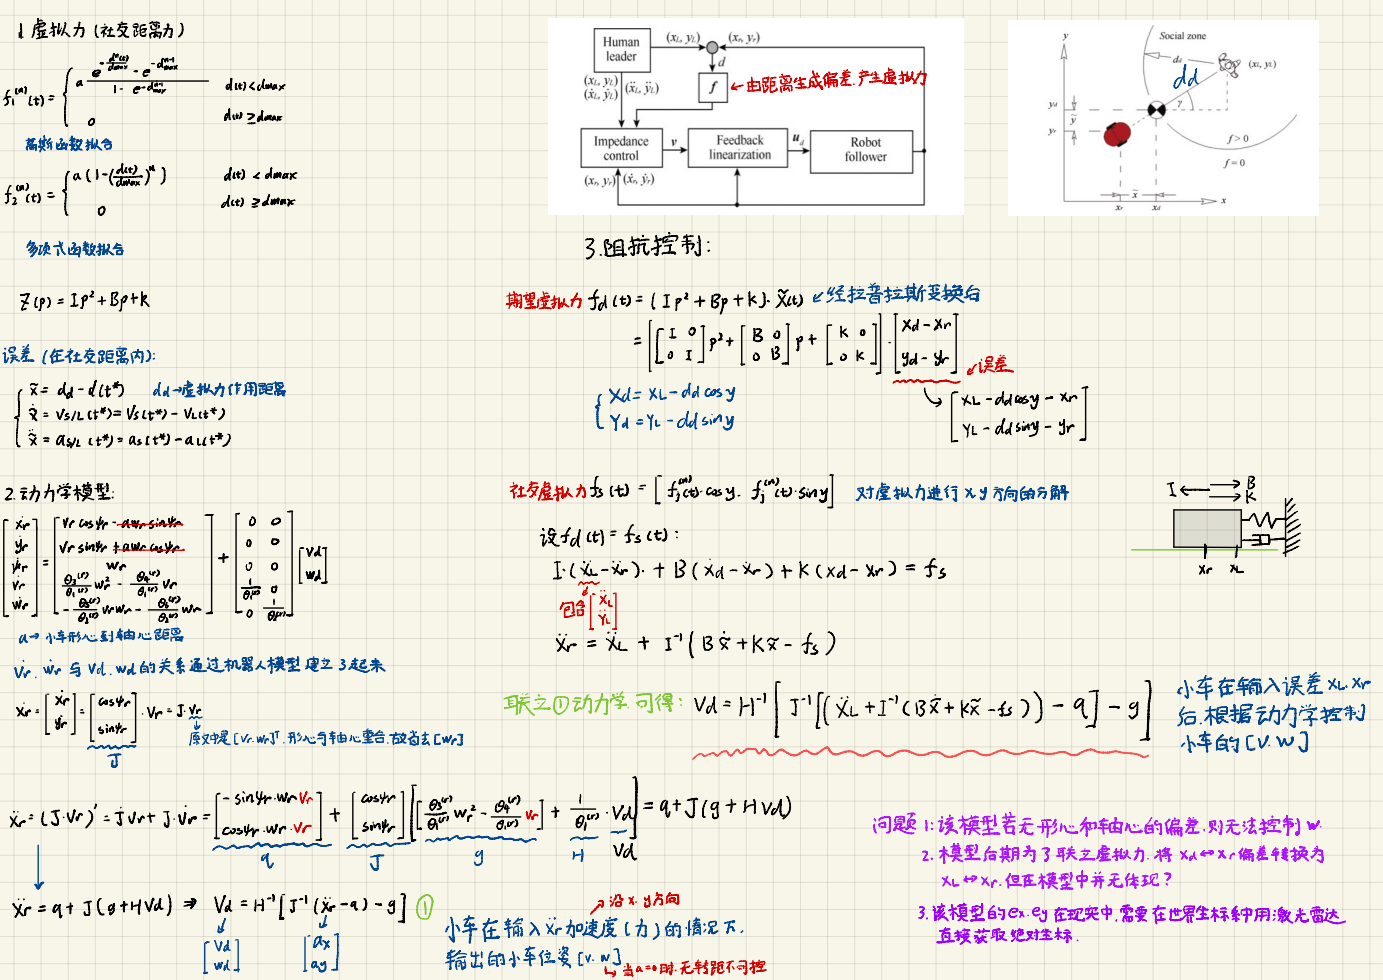 1. 虚拟力 (社交距离力)
f₁⁽ⁿ⁾(t) = { a (e^(-dⁿ(t)/dmax) - e^(-dmaxⁿ⁻¹)) / (1 - e^(-dmaxⁿ⁻¹))   d(t) < dmax
0   d(t) ≥ dmax
高斯函数拟合
f₂⁽ⁿ⁾(t) = { a (1-(d(t)/dmax)ⁿ)   d(t) < dmax
0   d(t) ≥ dmax
多项式函数拟合
Z(p) = Ip² + Bp + K
误差 (在社交距离内):
x̃ = dd - d(t*)   dd→虚拟力作用距离
ẋ̃ = Vs/L(t*) = Vs(t*) - VL(t*)
ẍ̃ = as/L(t*) = as(t*) - aL(t*)
2. 动力学模型:
[ẋr ẏr ψ̇r v̇r ẇr] =
Vr cosψr - awr sinψr   0 0
Vr sinψr + awr cosψr   0 0
wr   0 0
θ₃⁽ʳ⁾/θ₁⁽ʳ⁾ wr² - θ₄⁽ʳ⁾/θ₁⁽ʳ⁾ Vr   1/θ₁⁽ʳ⁾ 0
- θ₅⁽ʳ⁾/θ₂⁽ʳ⁾ Vr wr - θ₆⁽ʳ⁾/θ₂⁽ʳ⁾ wr   0 1/θ₂⁽ʳ⁾
[Vd wd]
a→小车形心到轴心距离
V̇r. ẇr 与 Vd. wd 的关系通过机器人模型建立了起来
ẋr = [ẋr ẏr] = [cosψr sinψr] · Vr = J·Vr
J
原文中是[Vr.wr]ᵀ. 形心与轴心重合. 故省去[wr]
ẍr = (J·Vr)′ = J̇Vr + J·V̇r = [-sinψr·wr Vr  cosψr·wr·Vr] + [cosψr sinψr] [[θ₃⁽ʳ⁾/θ₁⁽ʳ⁾ wr² - θ₄⁽ʳ⁾/θ₁⁽ʳ⁾ Vr] + 1/θ₁⁽ʳ⁾ · Vd] = q + J(g + HVd)
q   J   g   H   Vd
ẍr = q + J(g + HVd) ⇒ Vd = H⁻¹[J⁻¹(ẍr - q) - g] ①
[Vd wd]   [ax ay]
沿x.y方向
小车在输入ẍr加速度(力)的情况下.
输出的小车位姿[v.w]
当a=0时.无转距不可控
Human leader
(xL, yL)
(xr, yr)
d
f
←由距离生成偏差. 产生虚拟力
(xL, yL)
(ẋL, ẏL)
(ẍL, ÿL)
Impedance control
v
Feedback linearization
ud
Robot follower
(xr, yr)
(ẋr, ẏr)
y
Social zone
dd
dd
(xL, yL)
yd
ỹ
yr
γ
f > 0
f = 0
x̃
xr
xd
x
3. 阻抗控制:
期望虚拟力 fd(t) = (Ip² + Bp + K)·x̃(t) ←经拉普拉斯变换后
= [[I 0 0 I] p² + [B 0 0 B] p + [K 0 0 K]] · [Xd - Xr  yd - yr]
误差
{ Xd = XL - dd cosγ
Yd = YL - dd sinγ
[XL - dd cosγ - Xr
YL - dd sinγ - yr]
社交虚拟力 fs(t) = [fj⁽ⁿ⁾(t)·cosγ. fj⁽ⁿ⁾(t)·sinγ]   对虚拟力进行x.y方向的分解
设 fd(t) = fs(t):
I·(ẍL - ẍr)· + B(ẋd - ẋr) + K(xd - xr) = fs
包含[ẍL ÿL]
ẍr = ẍL + I⁻¹(Bẋ̃ + Kx̃ - fs)
I   B
K
xr   xL
联立①动力学 可得: Vd = H⁻¹[J⁻¹[(ẍL + I⁻¹(Bẋ̃ + Kx̃ - fs)) - q] - g]
小车在输入误差XL.Xr
后.根据动力学控制
小车的[V.W]
问题1: 该模型若无形心和轴心的偏差.则无法控制w.
2. 模型后期为了联立虚拟力.将Xd↔Xr偏差转换为
XL↔Xr. 但在模型中并无体现?
3. 该模型的ex.ey在现实中.需要在世界坐标系中用.激光雷达
直接获取绝对坐标.